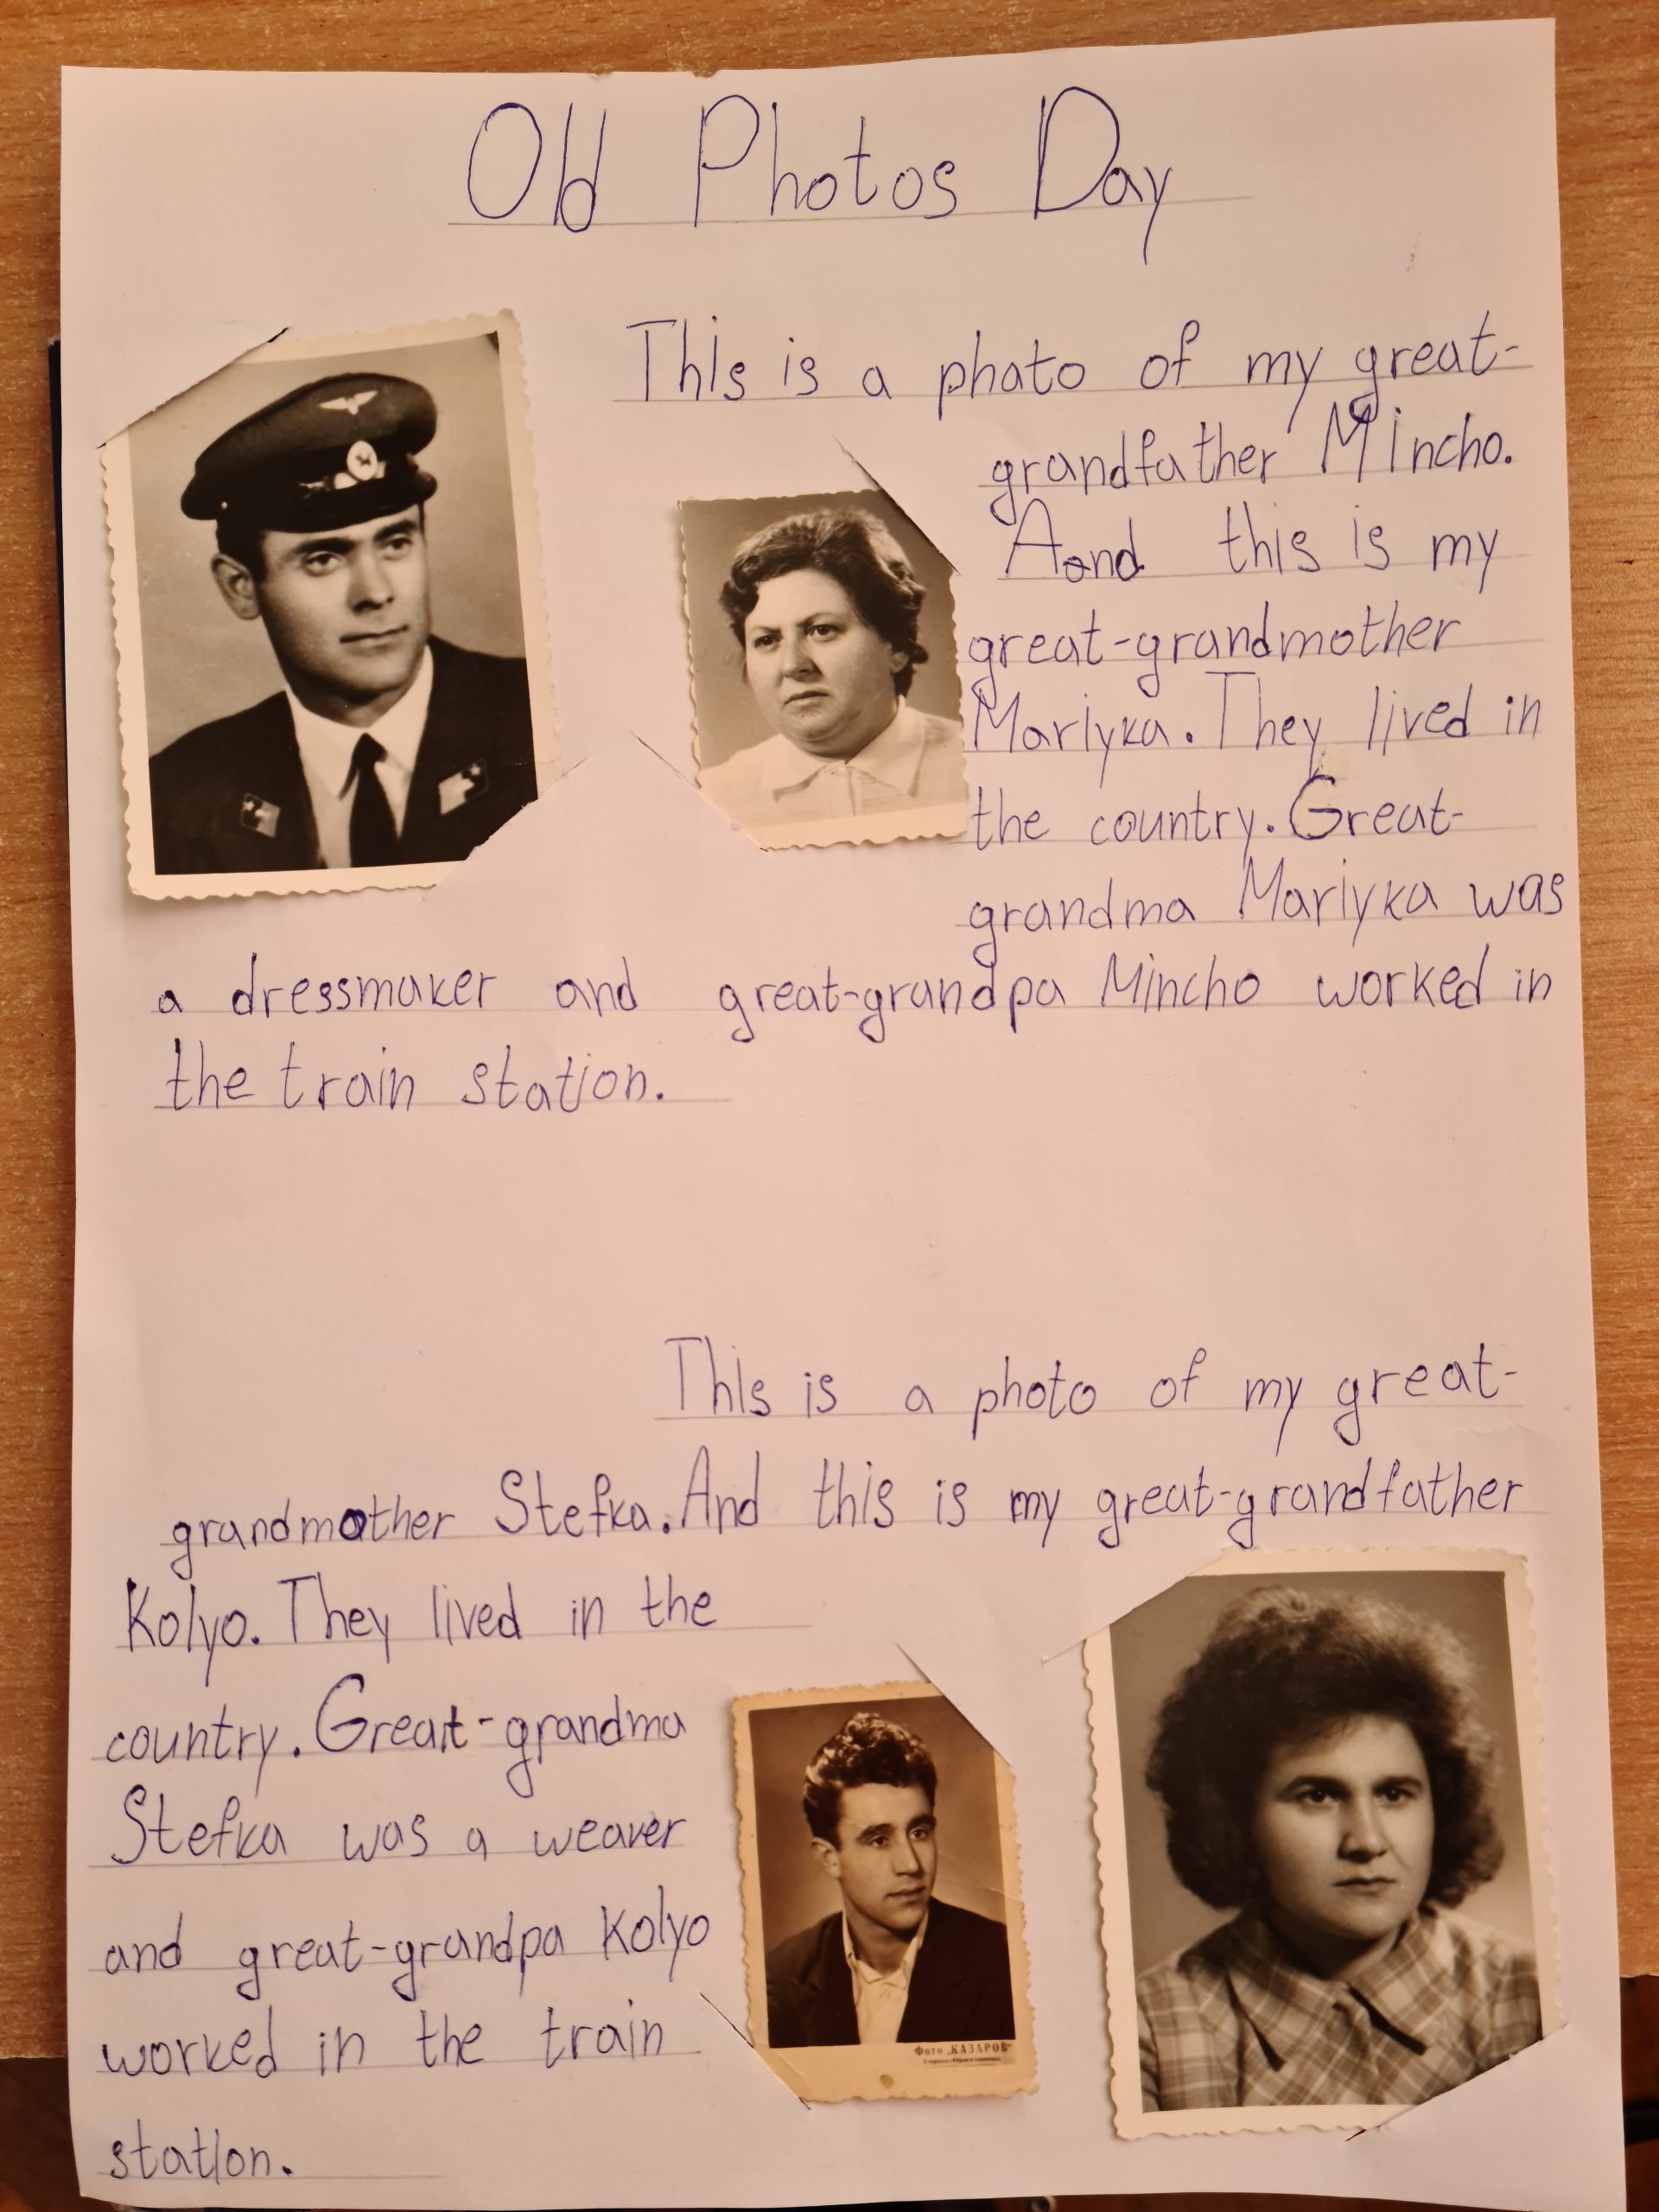 Old Photos Day
This is a photo of my great-
grandfather Mincho.
Aand this is my
great-grandmother
Mariyka. They lived in
the country. Great-
grandma Mariyka was
a dressmaker and great-grandpa Mincho worked in
the train station.
This is a photo of my great-
grandmother Stefka. And this is my great-grandfather
Kolyo. They lived in the
country. Great-grandma
Stefka was a weaver
and great-grandpa Kolyo
worked in the train
station.
Фото „КАЗАРОВ"